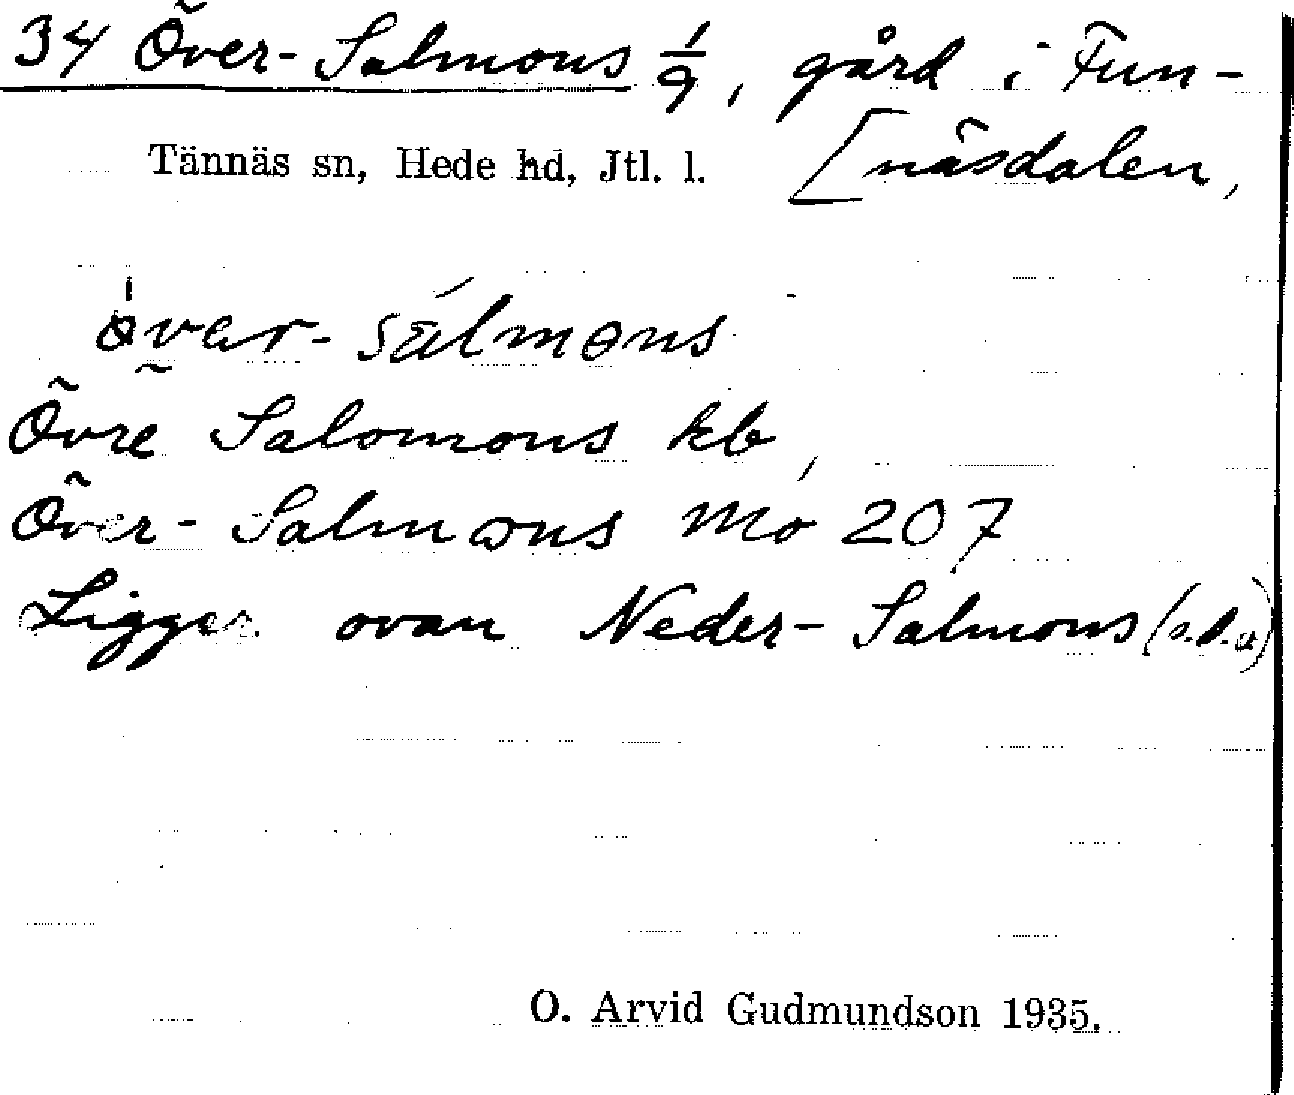 34 Över-Salmons 1/9, gård i Fun-
[näsdalen,
Tännäs sn, Hede hd, Jtl. l.
övar-sálmons
Övre Salomons kb,
Över-Salmons Mo 207
Ligger ovan Neder-Salmons (s.d.o)
O. Arvid Gudmundson 1935.